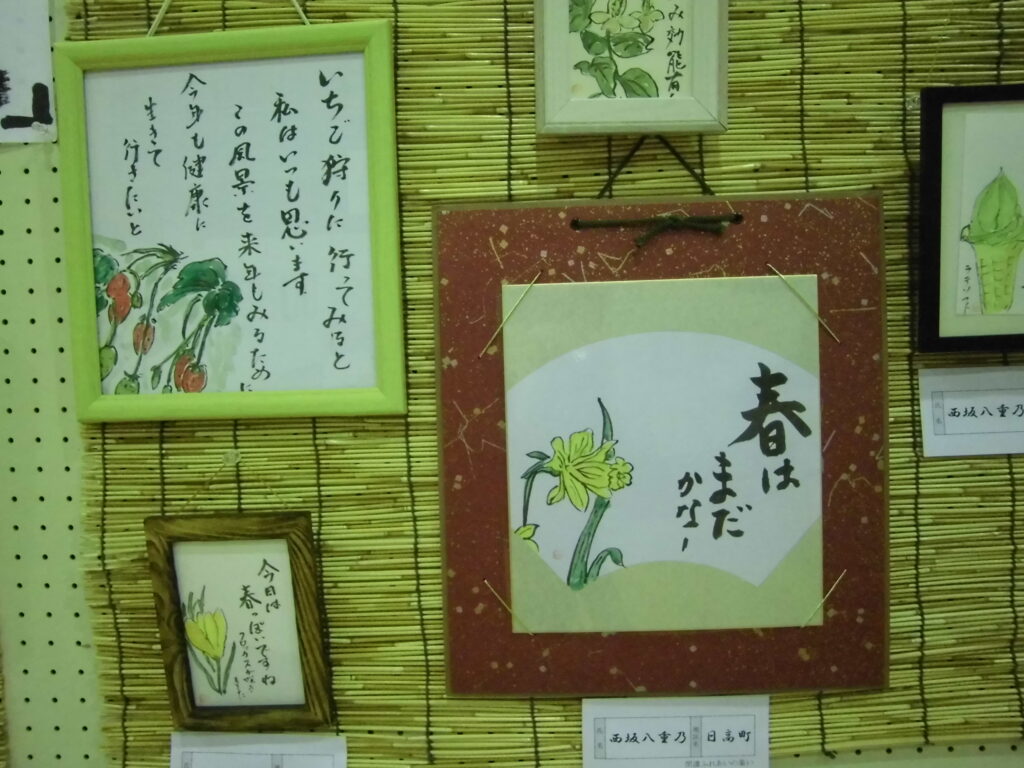 いちご狩りに行ってみると
私はいつも思います
この風景を来年もみるために
今年も健康に
生きて
行きたいと
み効能有り
春は
まだ
かなー
今日は
春っぽいですね
西坂八重乃
氏名
西坂八重乃
日高町